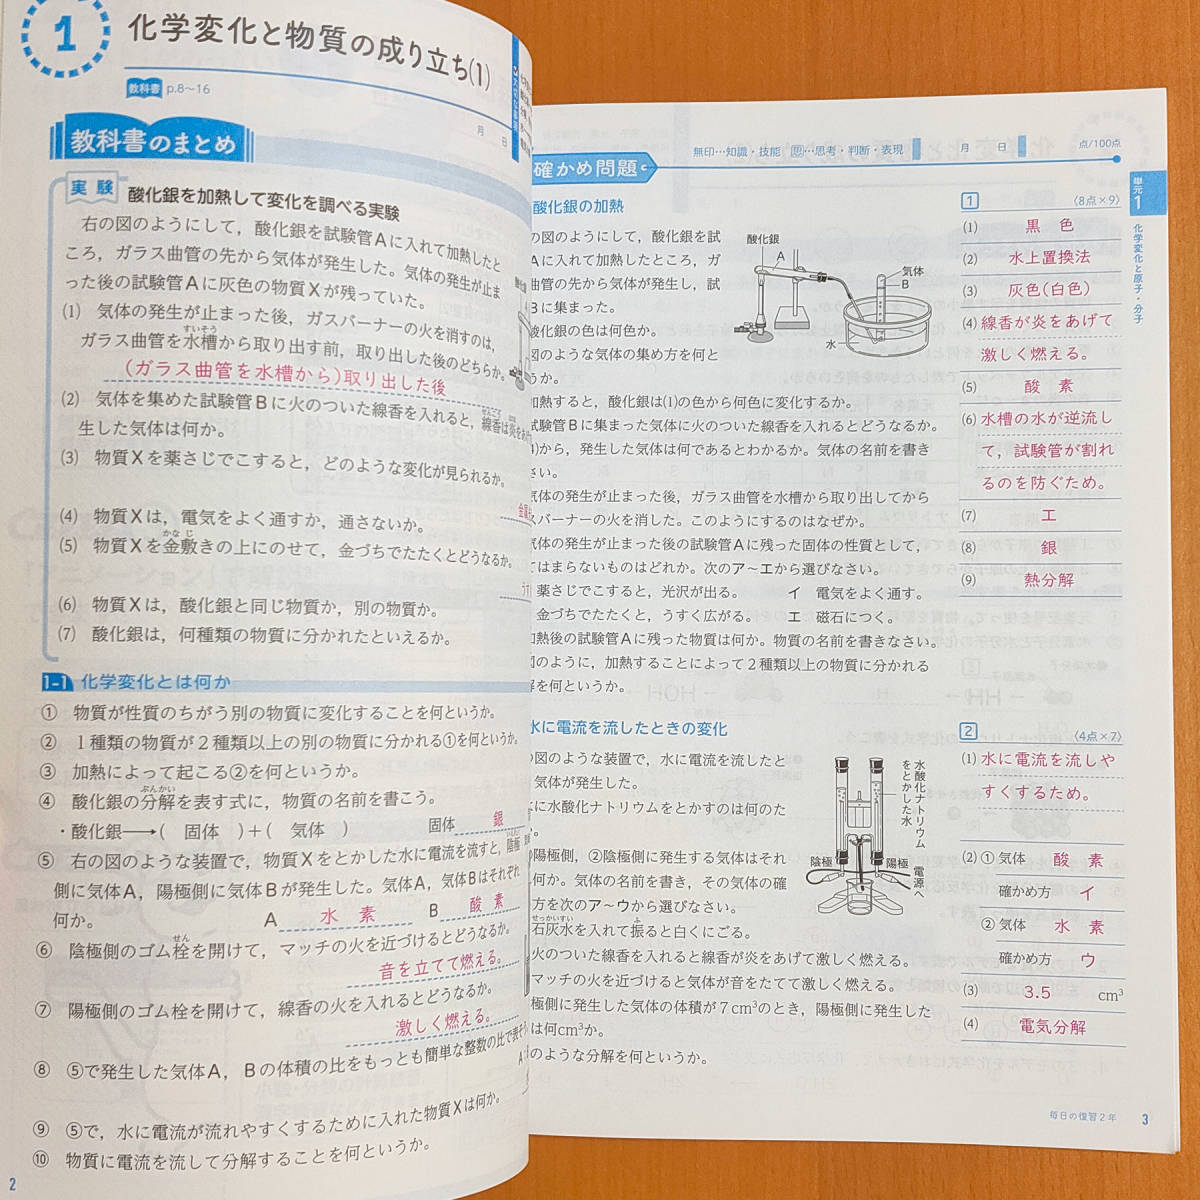 1
化学変化と物質の成り立ち(1)
教科書 p.8〜16
月 日
教科書のまとめ
実験 酸化銀を加熱して変化を調べる実験
右の図のようにして，酸化銀を試験管Aに入れて加熱したと
ころ，ガラス曲管の先から気体が発生した。気体の発生が止ま
った後の試験管Aに灰色の物質Xが残っていた。
(1) 気体の発生が止まった後，ガスバーナーの火を消すのは，
すいそう
ガラス曲管を水槽から取り出す前，取り出した後のどちらか。
(ガラス曲管を水槽から)取り出した後
(2) 気体を集めた試験管Bに火のついた線香を入れると，線香は炎をあ
生した気体は何か。
(3) 物質Xを薬さじでこすると，どのような変化が見られるか。
金属
(4) 物質Xは，電気をよく通すか，通さないか。
かなじ
(5) 物質Xを金敷きの上にのせて，金づちでたたくとどうなるか。
うす
(6) 物質Xは，酸化銀と同じ物質か，別の物質か。
(7) 酸化銀は，何種類の物質に分かれたといえるか。
1-1 化学変化とは何か
① 物質が性質のちがう別の物質に変化することを何というか。
② 1種類の物質が2種類以上の別の物質に分かれる①を何というか。
③ 加熱によって起こる②を何というか。
ぶんかい
④ 酸化銀の分解を表す式に，物質の名前を書こう。
・酸化銀→( 固体 )+( 気体 ) 固体 銀
⑤ 右の図のような装置で，物質Xをとかした水に電流を流すと，陰極
側に気体A，陽極側に気体Bが発生した。気体A，気体Bはそれぞれ
何か。 A 水素 B 酸素
せん
⑥ 陰極側のゴム栓を開けて，マッチの火を近づけるとどうなるか。
音を立てて燃える。
⑦ 陽極側のゴム栓を開けて，線香の火を入れるとどうなるか。
激しく燃える。
⑧ ⑤で発生した気体A，Bの体積の比をもっとも簡単な整数の比で表そう
A：
⑨ ⑤で，水に電流が流れやすくするために入れた物質Xは何か。
⑩ 物質に電流を流して分解することを何というか。
2
確かめ問題
無印…知識・技能 思…思考・判断・表現 月 日 点/100点
酸化銀の加熱
の図のようにして，酸化銀を試
Aに入れて加熱したところ，ガ
曲管の先から気体が発生し，試
Bに集まった。
酸化銀の色は何色か。
図のような気体の集め方を何と
うか。
加熱すると，酸化銀は(1)の色から何色に変化するか。
試験管Bに集まった気体に火のついた線香を入れるとどうなるか。
4)から，発生した気体は何であるとわかるか。気体の名前を書き
さい。
気体の発生が止まった後，ガラス曲管を水槽から取り出してから
スバーナーの火を消した。このようにするのはなぜか。
気体の発生が止まった後の試験管Aに残った固体の性質として，
てはまらないものはどれか。次のア〜エから選びなさい。
薬さじでこすると，光沢が出る。 イ 電気をよく通す。
金づちでたたくと，うすく広がる。 エ 磁石につく。
加熱後の試験管Aに残った物質は何か。物質の名前を書きなさい。
図のように，加熱することによって2種類以上の物質に分かれる
解を何というか。
酸化銀
A
気体
B
水
水に電流を流したときの変化
の図のような装置で，水に電流を流したと
気体が発生した。
に水酸化ナトリウムをとかすのは何のた
。
陽極側，②陰極側に発生する気体はそれ
何か。気体の名前を書き，その気体の確
方を次のア〜ウから選びなさい。
せっかいすい ふ
石灰水を入れて振ると白くにごる。
火のついた線香を入れると線香が炎をあげて激しく燃える。
マッチの火を近づけると気体が音をたてて激しく燃える。
極側に発生した気体の体積が7cm³のとき，陽極側に発生した
は何cm³か。
のような分解を何というか。
水酸化ナトリウム
をとかした水
陰極
陽極
電源へ
1 〈8点×9〉
(1) 黒色
(2) 水上置換法
(3) 灰色(白色)
(4) 線香が炎をあげて
激しく燃える。
(5) 酸素
(6) 水槽の水が逆流し
て，試験管が割れ
るのを防ぐため。
(7) エ
(8) 銀
(9) 熱分解
2 〈4点×7〉
(1) 水に電流を流しや
すくするため。
(2) ① 気体 酸素
確かめ方 イ
② 気体 水素
確かめ方 ウ
(3) 3.5 cm³
(4) 電気分解
単元1
化学変化と原子・分子
毎日の復習2年 3